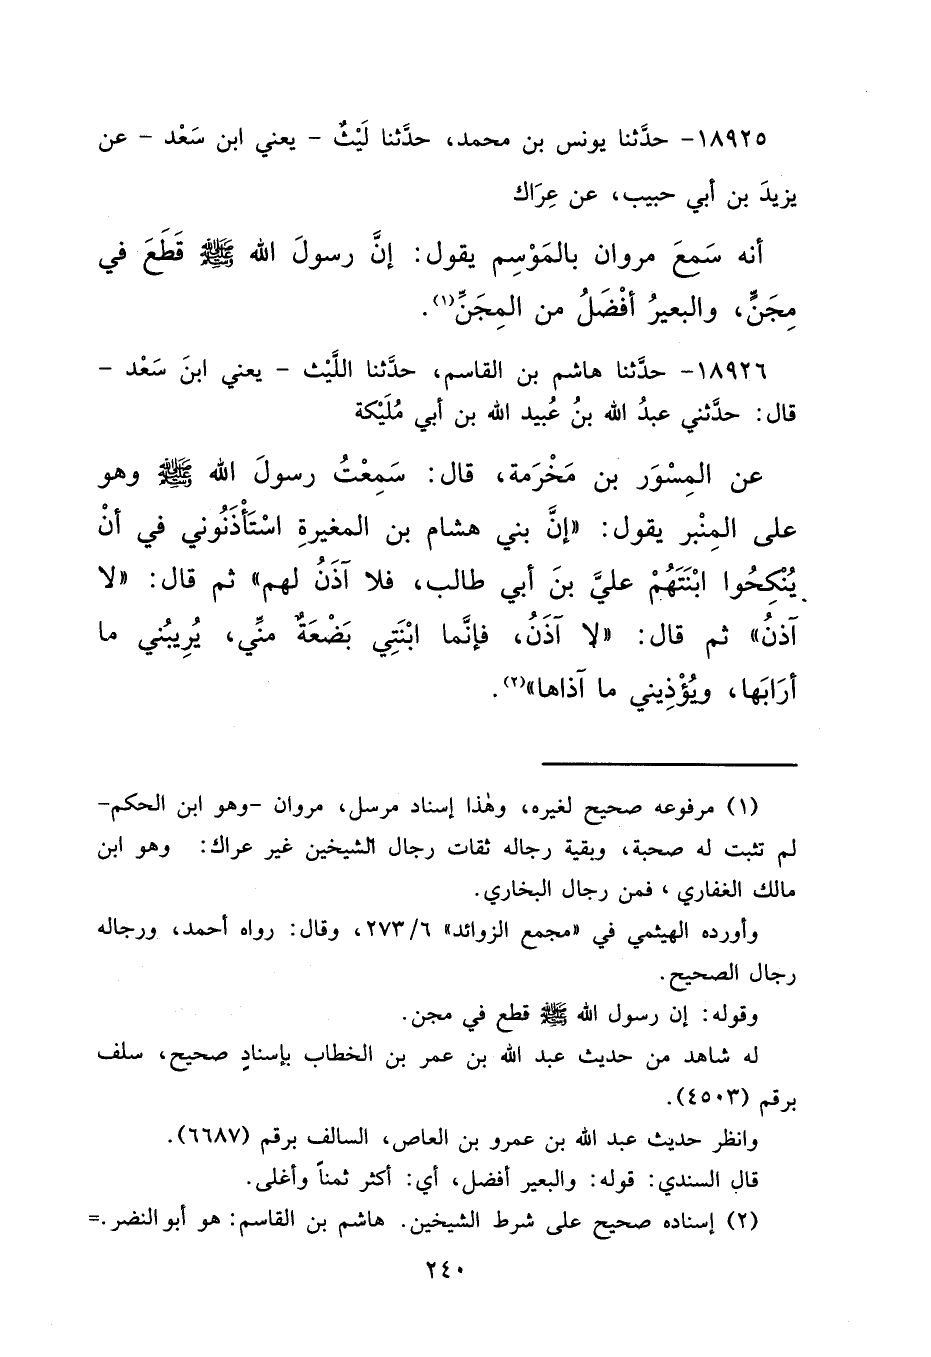 ١٨٩٢٥- حدَّثنا يونس بن محمد، حدَّثنا لَيْثٌ - يعني ابن سَعْد - عن
يزيدَ بن أبي حبيب، عن عِرَاك
أنه سَمِعَ مروان بالمَوْسِم يقول: إنَّ رسولَ الله ﷺ قَطَعَ في
مِجَنٍّ، والبعيرُ أفْضَلُ من المِجَنِّ(١).
١٨٩٢٦- حدَّثنا هاشم بن القاسم، حدَّثنا اللَّيْث - يعني ابنَ سَعْد -
قال: حدَّثني عبدُ الله بنُ عُبيد الله بن أبي مُلَيْكة
عن المِسْوَر بن مَخْرَمة، قال: سَمِعْتُ رسولَ الله ﷺ وهو
على المِنْبر يقول: «إنَّ بني هشام بن المغيرةِ اسْتَأْذَنُوني في أنْ
يُنْكِحُوا ابْنَتَهُمْ عليَّ بنَ أبي طالب، فلا آذَنُ لهم» ثم قال: «لا
آذنُ» ثم قال: «لا آذَنُ، فإنَّما ابْنَتِي بَضْعَةٌ منِّي، يُرِيبُني ما
أرَابَها، ويُؤْذِيني ما آذاها»(٢).
(١) مرفوعه صحيح لغيره، وهٰذا إسناد مرسل، مروان -وهو ابن الحكم-
لم تثبت له صحبة، وبقية رجاله ثقات رجال الشيخين غير عراك: وهو ابن
مالك الغفاري ، فمن رجال البخاري.
وأورده الهيثمي في «مجمع الزوائد» ٢٧٣/٦، وقال: رواه أحمد، ورجاله
رجال الصحيح.
وقوله: إن رسول الله ﷺ قطع في مجن.
له شاهد من حديث عبد الله بن عمر بن الخطاب بإسنادٍ صحيح، سلف
برقم (٤٥٠٣).
وانظر حديث عبد الله بن عمرو بن العاص، السالف برقم (٦٦٨٧).
قال السندي: قوله: والبعير أفضل، أي: أكثر ثمناً وأغلى.
(٢) إسناده صحيح على شرط الشيخين. هاشم بن القاسم: هو أبو النضر.=
٢٤٠